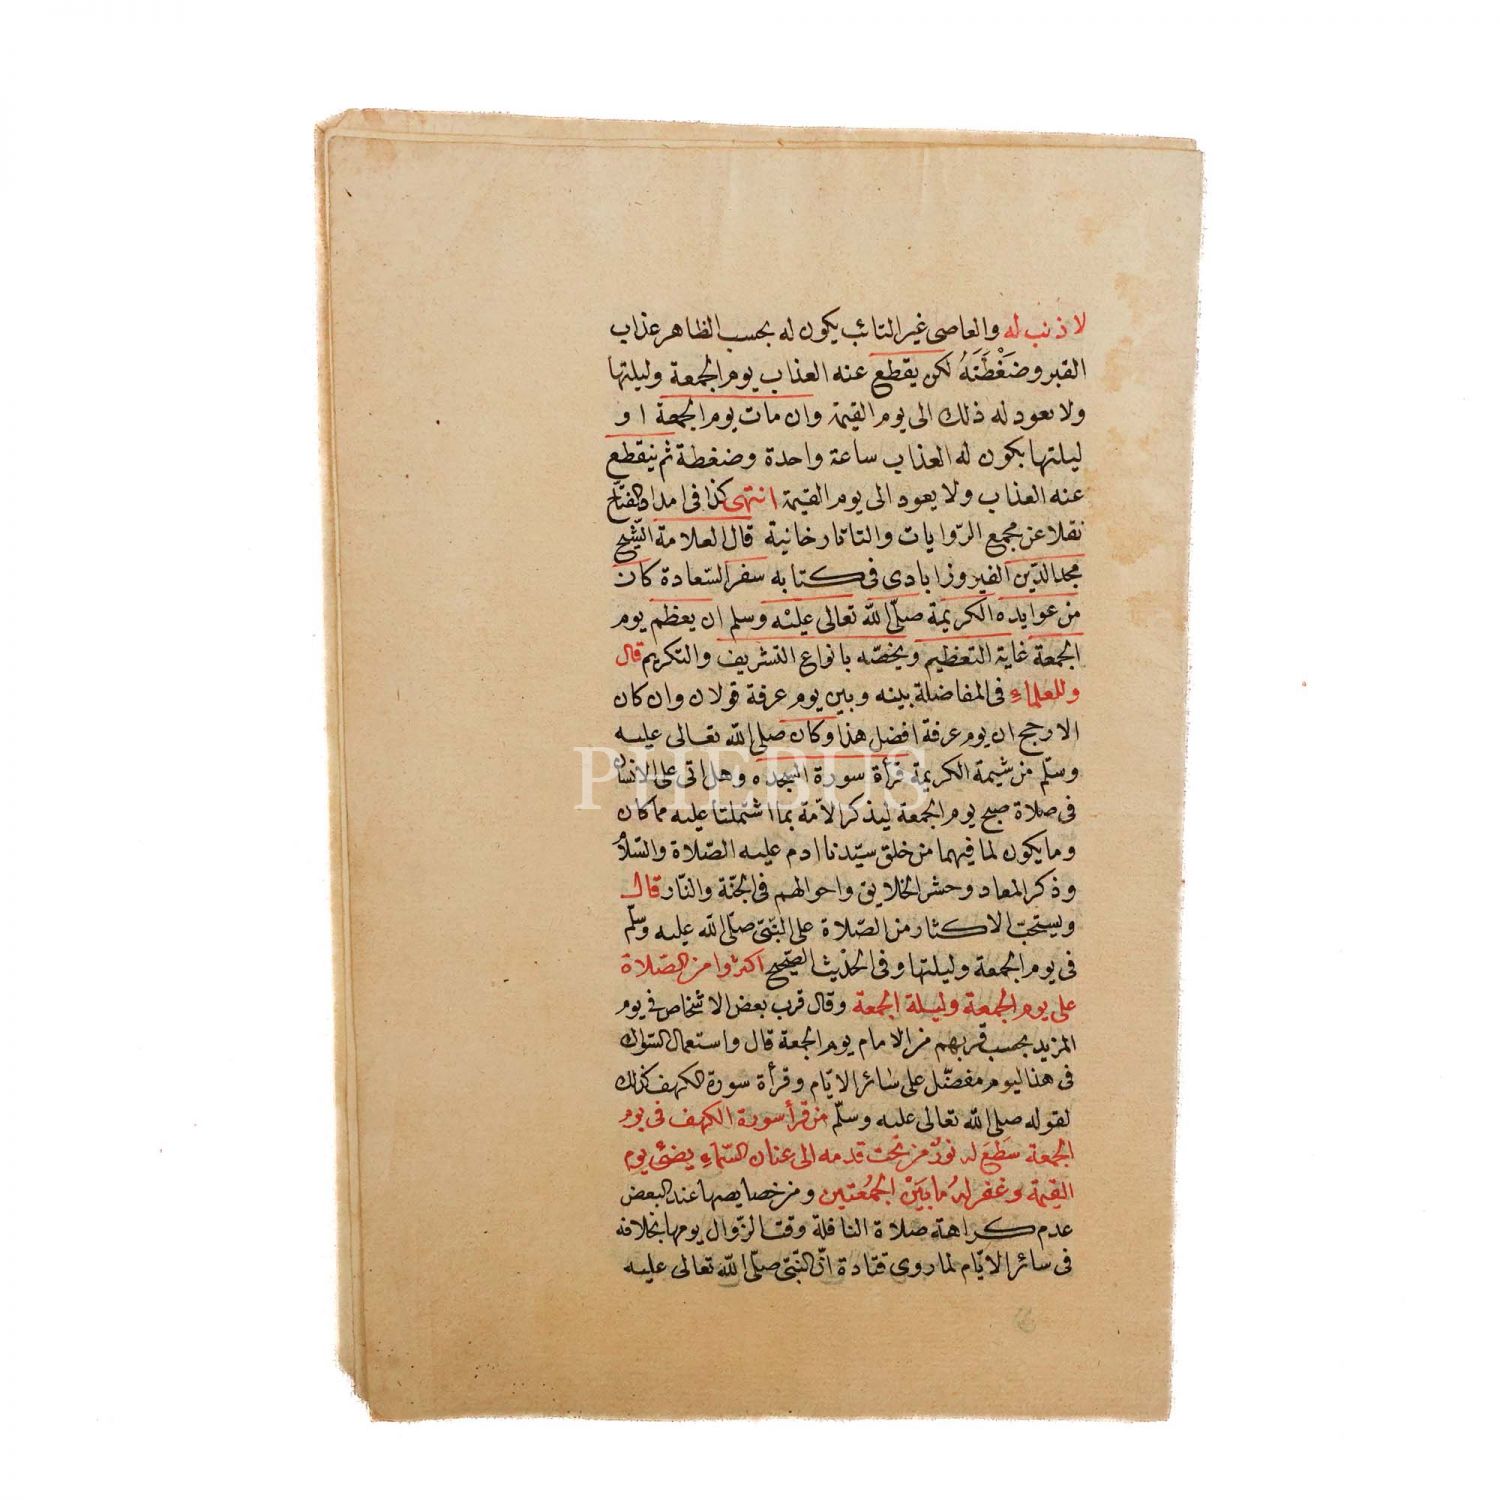 لا ذنب له والعاصي غير التائب يكون له بحسب الظاهر عذاب
القبر وضَغْطَتَهُ لكن يقطع عنه العذاب يوم الجمعة وليلتها
ولا يعود له ذلك الى يوم القيمة وان مات يوم الجمعة ا و
ليلتها يكون له العذاب ساعة واحدة وضغطة ثم ينقطع
عنه العذاب ولا يعود الى يوم القيمة انتهى كذا فى امداد الفتاح
نقلا عن مجمع الرّوايات والتاتارخانية قال العلامة الشيخ
مجد الدّين الفيروزابادى فى كتابه سفر السّعادة كان
من عوايده الكريمة صلّى الله تعالى عليْه وسلم ان يعظم يوم
الجمعة غاية التعظيم ويخصّه بانواع التشريف والتكريم قال
وللعلماء فى المفاضلة بينه وبين يوم عرفة قولان وان كان
الارجح ان يوم عرفة افضل هذا وكان صلى الله تعالى عليه
وسلّم من شيمة الكريمة قرأة سورة السجده وهل اتى على الانسان
فى صلاة صبح يوم الجمعة ليذكر الأمّة بما اشتملتا عليه مما كان
وما يكون لما فيهما من خلق سيّدنا ادم عليه الصّلاة والسّلام
وذكر المعاد وحشر الخلايق واحوالهم فى الجنّة والنّار قال
ويستحبّ الاكثار من الصّلاة على النّبىّ صلّى الله عليه وسلّم
فى يوم الجمعة وليلتها وفى الحديث الصّحيح اكثروا من الصّلاة
على يوم الجمعة وليلة الجمعة وقال قرب بعض الاشخاص فى يوم
المزيد بحسب قربهم من الامام يوم الجمعة قال واستعمال السّواك
فى هذا اليوم مفضّل على سائر الايّام وقرأة سورة الكهف كذلك
لقوله صلى الله تعالى عليه وسلّم من قرأ سورة الكهف فى يوم
الجمعة سَطَعَ له نورٌ من تحت قدمه الى عنان السّماء يضئ يوم
القيمة وغفر لهُ ما بَيْنَ الجمُعتين ومن خصايصها عند البعض
عدم كراهة صلاة النافلة وقت الزّوال يومها بخلافه
فى سائر الايّام لما روى قتادة انّ النّبىّ صلّى الله تعالى عليه
PHEBUS